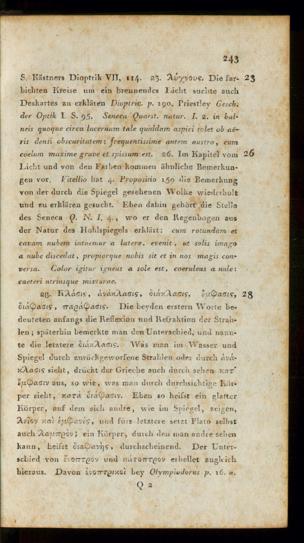 243
S. Kästners Dioptrik VII, 114. 23. Λύχνους. Die far- 23
bichten Kreise um ein brennendes Licht suchte auch
Deskartes zu erklären Dioptric. p. 190. Priestley Gesch.
der Optik I. S. 95. Seneca Quaest. natur. I. 2. in bal-
neis quoque circa lucernam tale quiddam aspici solet ob aë-
ris densi obscuritatem; frequentissime autem austro, cum
coelum maxime grave et spissum est. 26. Im Kapitel vom 26
Licht und von den Farben kommen ähnliche Bemerkun-
gen vor. Vitellio hat 4. Propositio 159 die Bemerkung
von der durch die Spiegel gesehenen Wolke wiederholt
und zu erklären gesucht. Eben dahin gehört die Stelle
des Seneca Q. N. I, 4., wo er den Regenbogen aus
der Natur des Hohlspiegels erklärt: cum rotundam et
cavam nubem intuemur a latere, evenit, ut solis imago
a nube discedat, propiorque nobis sit et in nos magis con-
versa. Color igitur igneus a sole est, coeruleus a nube:
caeteri utriusque mixturae.
28. Κλάσις, ἀνάκλασις, διάκλασις, ἔμφασις, 28
διάφασις, παράφασις. Die beyden ersten Worte be-
deuteten anfangs die Reflexion und Refraktion der Strah-
len; späterhin bemerkte man den Unterschied, und nann-
te die letztere διάκλασις. Was man im Wasser und
Spiegel durch zurückgeworfene Strahlen oder durch ἀνά-
κλασις sieht, drückt der Grieche auch durch sehen κατ'
ἔμφασιν aus, so wie, was man durch durchsichtige Kör-
per sieht, κατὰ διάφασιν. Eben so heifst ein glatter
Körper, auf dem sich andre, wie im Spiegel, zeigen,
λεῖον καὶ ἐμφανὲς, und fürs letztere setzt Plato selbst
auch λαμπρὸν; ein Körper, durch den man andre sehen
kann, heifst διαφανὴς, durchscheinend. Der Unter-
schied von δίοπτρον und κάτοπτρον erhellet zugleich
hieraus. Davon ἐνοπτρικοὶ bey Olympiodorus p. 16. a.
Q 2